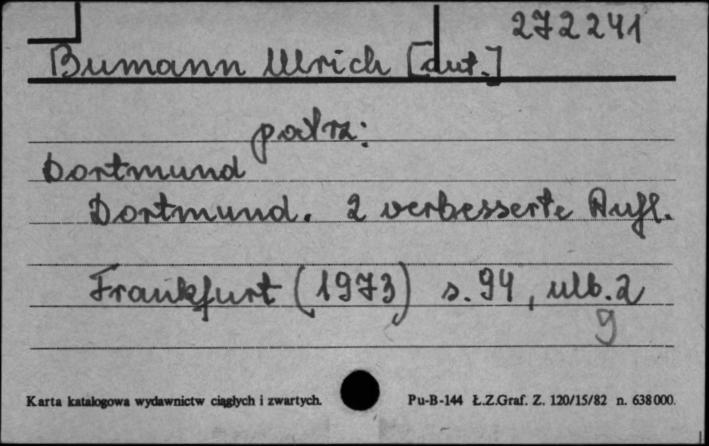 272241
Bumann Ulrich [aut.]
patrz:
Dortmund
Dortmund. 2 verbesserte Aufl.
Frankfurt (1973) s. 94, ulb. 2
9
Karta katalogowa wydawnictw ciągłych i zwartych.
Pu-B-144 Ł.Z.Graf. Z. 120/15/82 n. 638000.